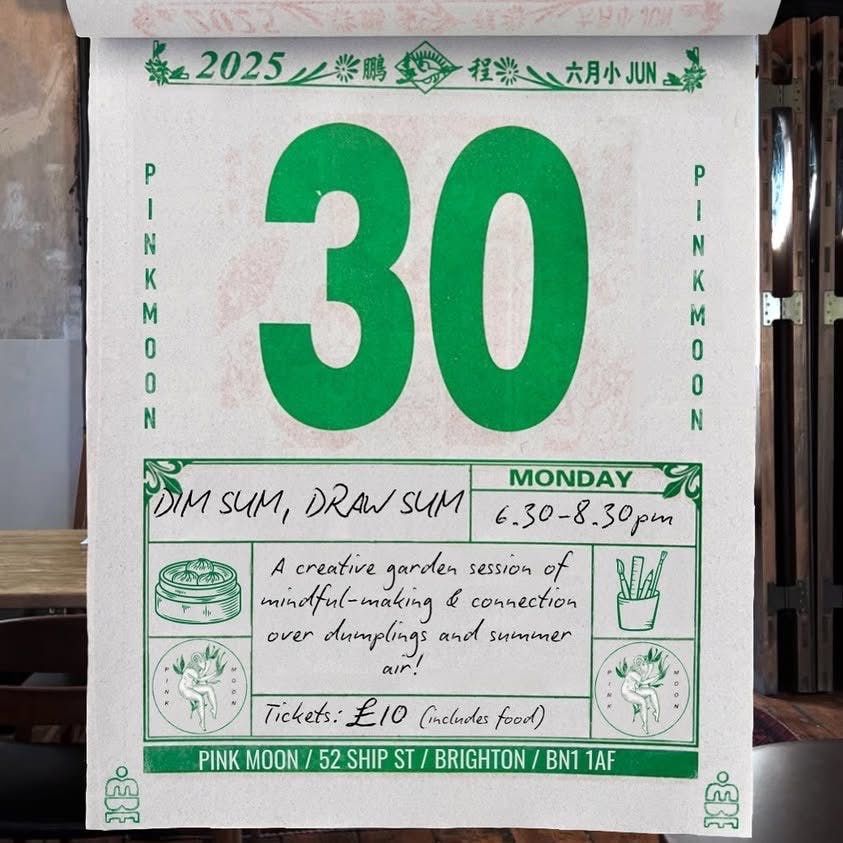 2025 鵬 程 六月小 JUN
30
PINKMOON
PINKMOON
DIM SUM, DRAW SUM
MONDAY
6.30-8.30pm
A creative garden session of
mindful-making & connection
over dumplings and summer
air!
PINK MOON
PINK MOON
Tickets: £10 (includes food)
PINK MOON / 52 SHIP ST / BRIGHTON / BN1 1AF